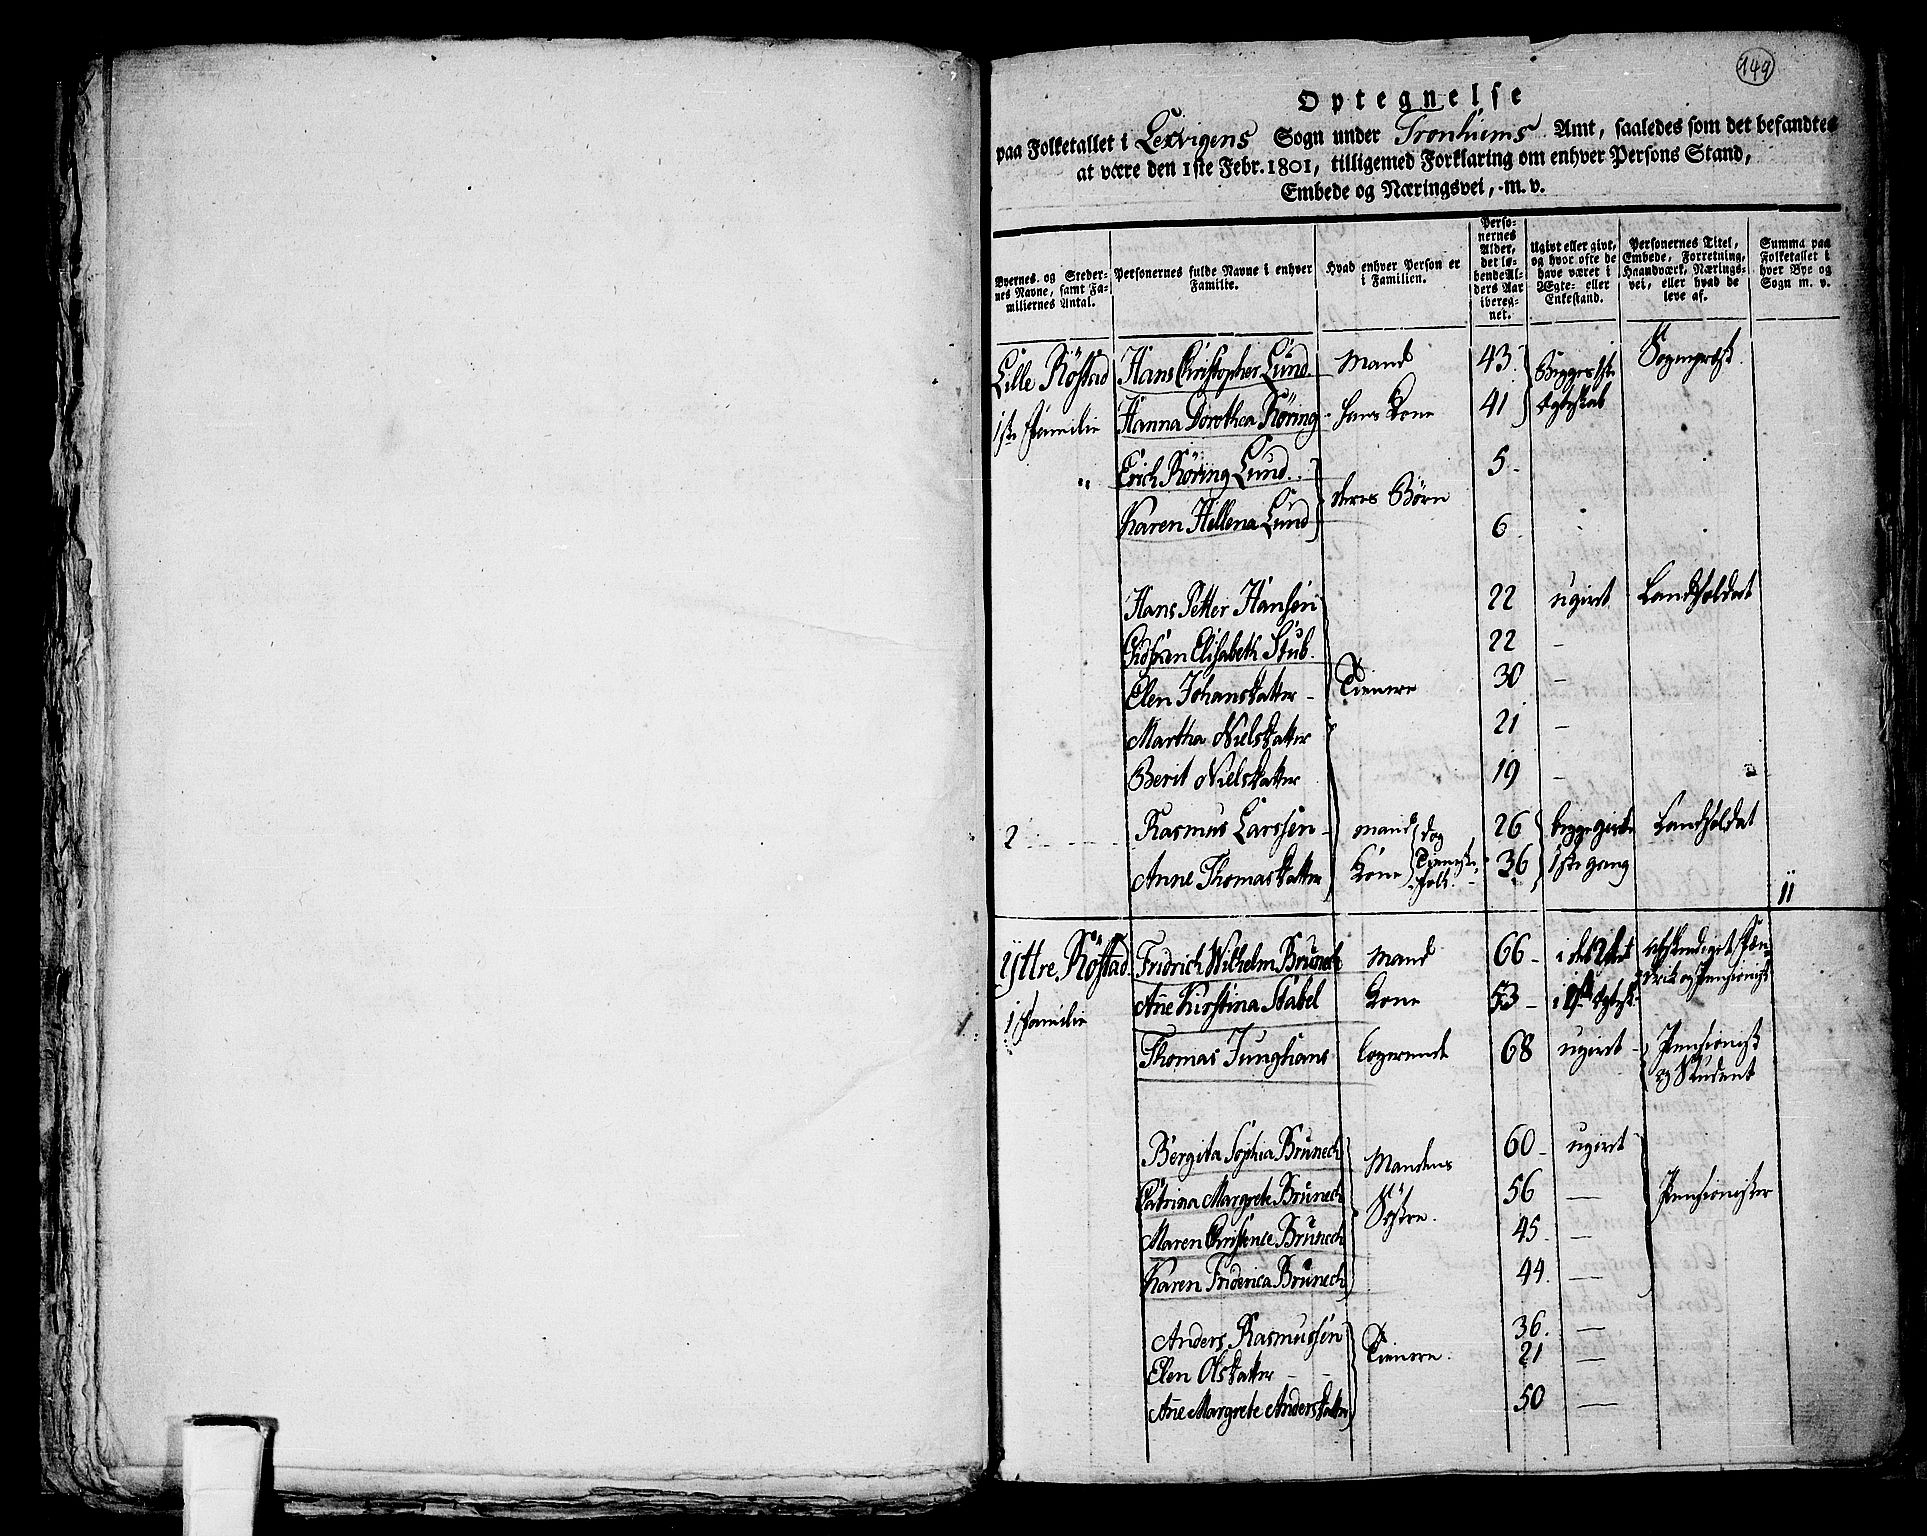 149
Optegnelse
paa Folketallet i Lexvigens Sogn under Tronhiems Amt, saaledes som det befandtes
at være den 1ste Febr. 1801, tilligemed Forklaring om enhver Persons Stand,
Embede og Næringsvei, m. v.
Byernes og Steder-
nes Navne, samt Fa-
miliernes Antal.
Personernes fulde Navne i enhver
Familie.
Hvad enhver Person er
i Familien.
Perso-
nernes
Alder,
det lø-
bende Al-
ders Aar
ibereg-
net.
Ugivt eller givt,
og hvor ofte de
have været i
Ægte- eller
Enkestand.
Personernes Titel,
Embede, Forretning,
Haandværk, Nærings-
vei, eller hvad de
leve af.
Summa paa
Folketallet i
hver Bye og
Sogn m. v.
Lille Röstad Hans Christopher Lund Mand 43 Begges 1ste Sognepræst.
1ste Familie Hanna Dorothea Röring hans Kone 41 Egteskab
Erich Röring Lund 5
deres Børn
Karen Hellena Lund 6
Hans Petter Hansen 22 ugivt Landsoldat
Elisabeth Stub 22 —
Elen Johansdatter 30 —
Tienere
Martha Nielsdatter 21 —
Berit Nielsdatter 19 —
2 Rasmus Larssen mand dog 26 begge givte Landsoldat
Anne Thomasdatter Kone Tieneste folk 36 1ste gang
11
Yttre Röstad Fridrich Wilhelm Brunech Mand 66 i det 2det afskendiget Fæn-
drik og Pensionist
1 Familie Ane Kirstina Stabel Kone 53 i 1ste Egtesk.
Thomas Junghans logerende 68 ugivt Pensionist
og Student
Bergita Sophia Brunech Mandens 60 ugivt
Catrina Margrete Brunech Søstre. 56 — Pensionister
Maren Christence Brunech 45 —
Karen Friderica Brunech 44 —
Anders Rasmussen 36 —
Tienere.
Elen Olsdatter 21 —
Ane Margrete Andersdatter 50 —